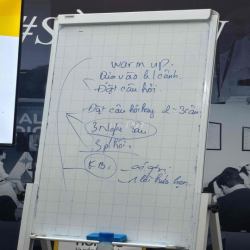 #S
warm up.
Đưa vào b/cảnh
Đặt câu hỏi
Đặt câu hỏi hay 2-3 câu
3 Nghe sâu
3 p/hồi.
K B:
1 lời hứa hẹn